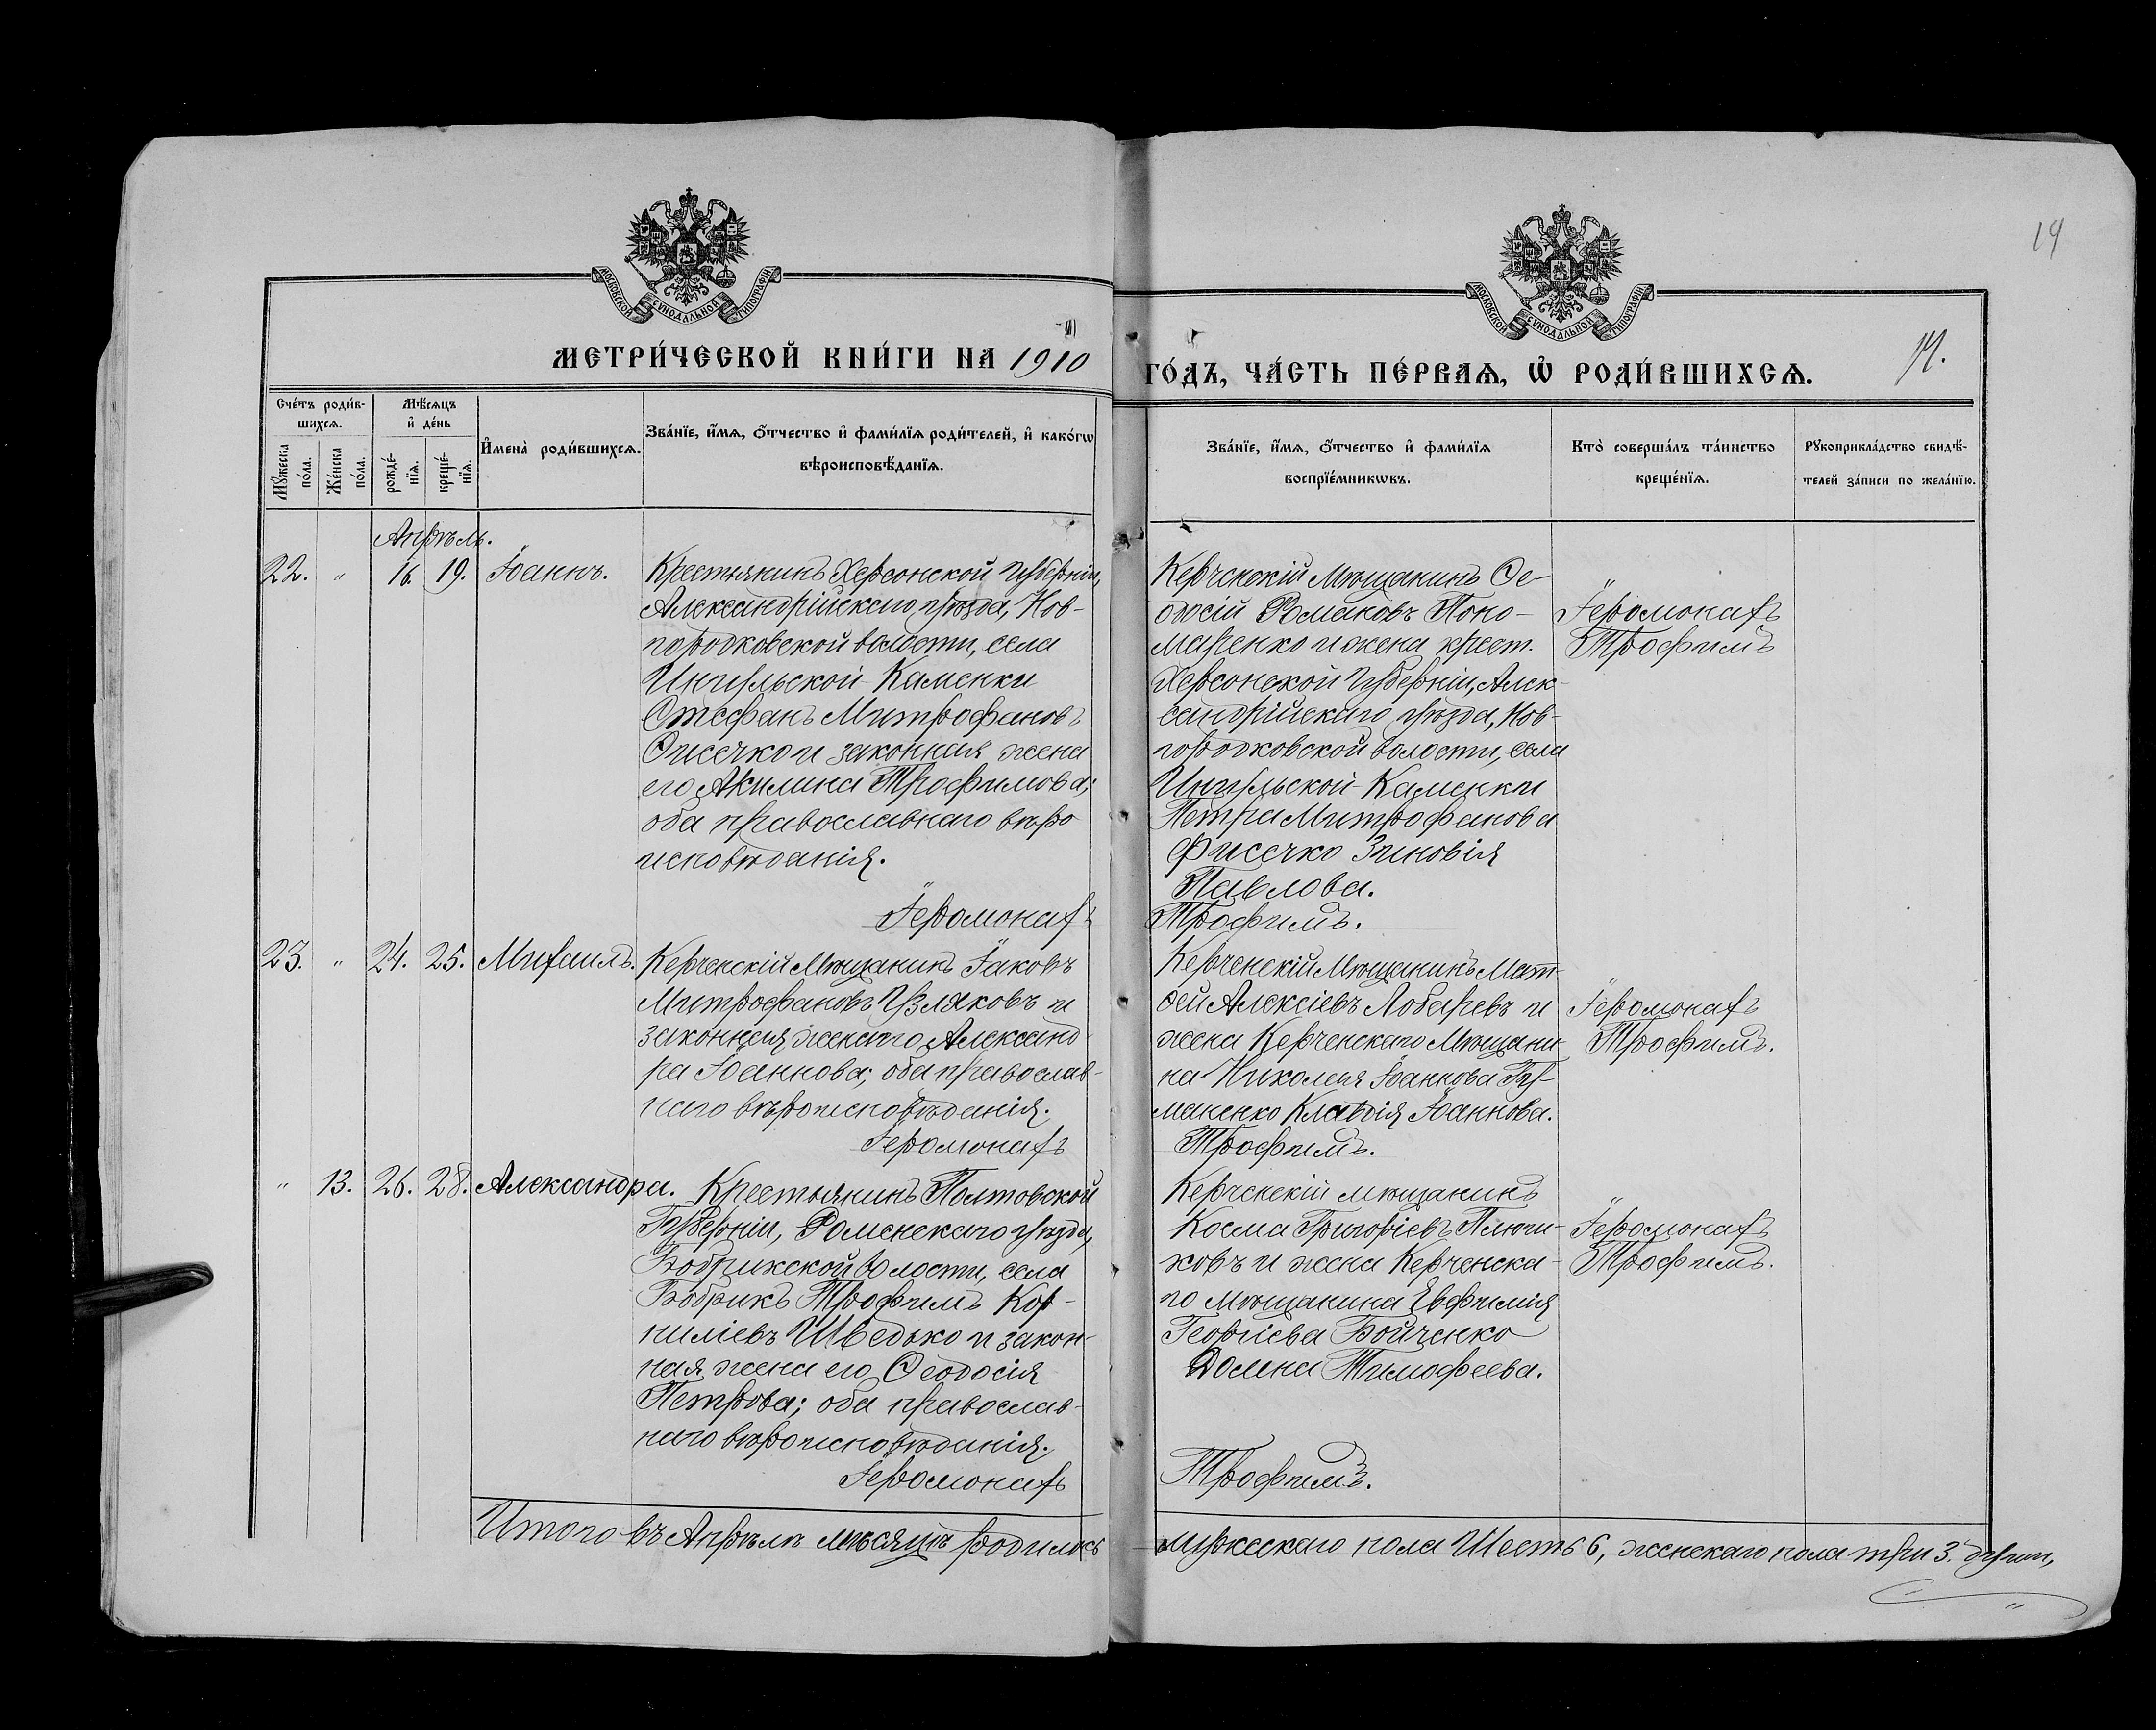 14
МОСКОВСКОЙ СѴНОДАЛЬНОЙ ТИПОГРАФІИ
МОСКОВСКОЙ СѴНОДАЛЬНОЙ ТИПОГРАФІИ
МЕТРИ́ЧЕСКОЙ КНИ́ГИ НА 1910
ГО́ДЪ, ЧА́СТЬ ПЕ́РВАѦ, Ѡ҆ РОДИ́ВШИХСѦ.
14.
Сче́тъ роди́в-
шихсѧ.
Мꙋ́жеска
по́ла.
Же́нска
по́ла.
Мѣ́сѧцъ
и҆ де́нь
рожде́-
нїѧ.
креще́-
нїѧ.
И҆мена̀ роди́вшихсѧ.
Зва́нїе, и҆́мѧ, ѻ҆́тчество и҆ фами́лїѧ роди́телей, и҆ како́гѡ
вѣроисповѣ́данїѧ.
Зва́нїе, и҆́мѧ, ѻ҆́тчество и҆ фами́лїѧ
воспрїе́мникѡвъ.
Кто̀ соверша́лъ та́инство
креще́нїѧ.
Рꙋкоприкла́дство свидѣ́-
телей за́писи по жела́нїю.
Апрѣль.
22. " 16. 19. Іоаннъ.
Крестьянинъ Херсонской губерніи,
Александрійскаго уѣзда, Нов-
городковской волости, села
Ингульской Каменки
Стефанъ Митрофановъ
Фисечко и законная жена
его Акилина Трофимова;
оба православнаго вѣро
исповѣданія.
Іеромонахъ
Керченскій Мѣщанинъ Ѳе-
одосій Романовъ Поно-
маренко и жена крест.
Херсонской губерніи, Алек-
сандрійскаго уѣзда, Нов-
городковской волости, села
Ингульской-Каменки
Петра Митрофанова
Фисечко Зиновія
Павлова.
Трофимъ.
Іеромонахъ
Трофимъ
23. " 24. 25. Михаилъ.
Керченскій Мѣщанинъ Іаковъ
Митрофановъ Гузляковъ и
законная жена его Александ-
ра Іоаннова; оба православ-
наго вѣроисповѣданія.
Іеромонахъ
Керченскій Мѣщанинъ Мат-
ѳей Алексіевъ Лобаревъ и
жена Керченскаго Мѣщани-
на Николая Іоаннова Гу-
маненко Клавдія Іоаннова.
Трофимъ.
Іеромонахъ
Трофимъ.
" 13. 26. 28. Александра.
Крестьянинъ Полтовской
Губерніи, Роменскаго уѣзда,
Бобрикской волости, села
Бобрикъ Трофимъ Кор-
ниліевъ Шведько и закон-
ная жена его Ѳеодосія
Петрова; оба православ-
наго вѣроисповѣданія.
Іеромонахъ
Керченскій мѣщанинъ
Косма Григоріевъ Плючи-
ковъ и жена Керченска-
го мѣщанина Евфимія
Георгіева Бойченко
Домна Тимофеева.
Трофимъ.
Іеромонахъ
Трофимъ.
Итого въ Апрѣлѣ мѣсяцѣ родилось
мужескаго пола Шесть 6, женскаго пола три 3.